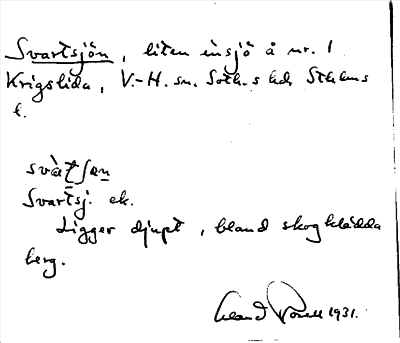 Svartsjön, liten insjö å nr. 1
Krigslida, V.-H. sn. Soth.s hd. Sthlms
l.
svàtʃən
Svartsj. ek.
Ligger djupt, bland skogklädda
berg.
1931.